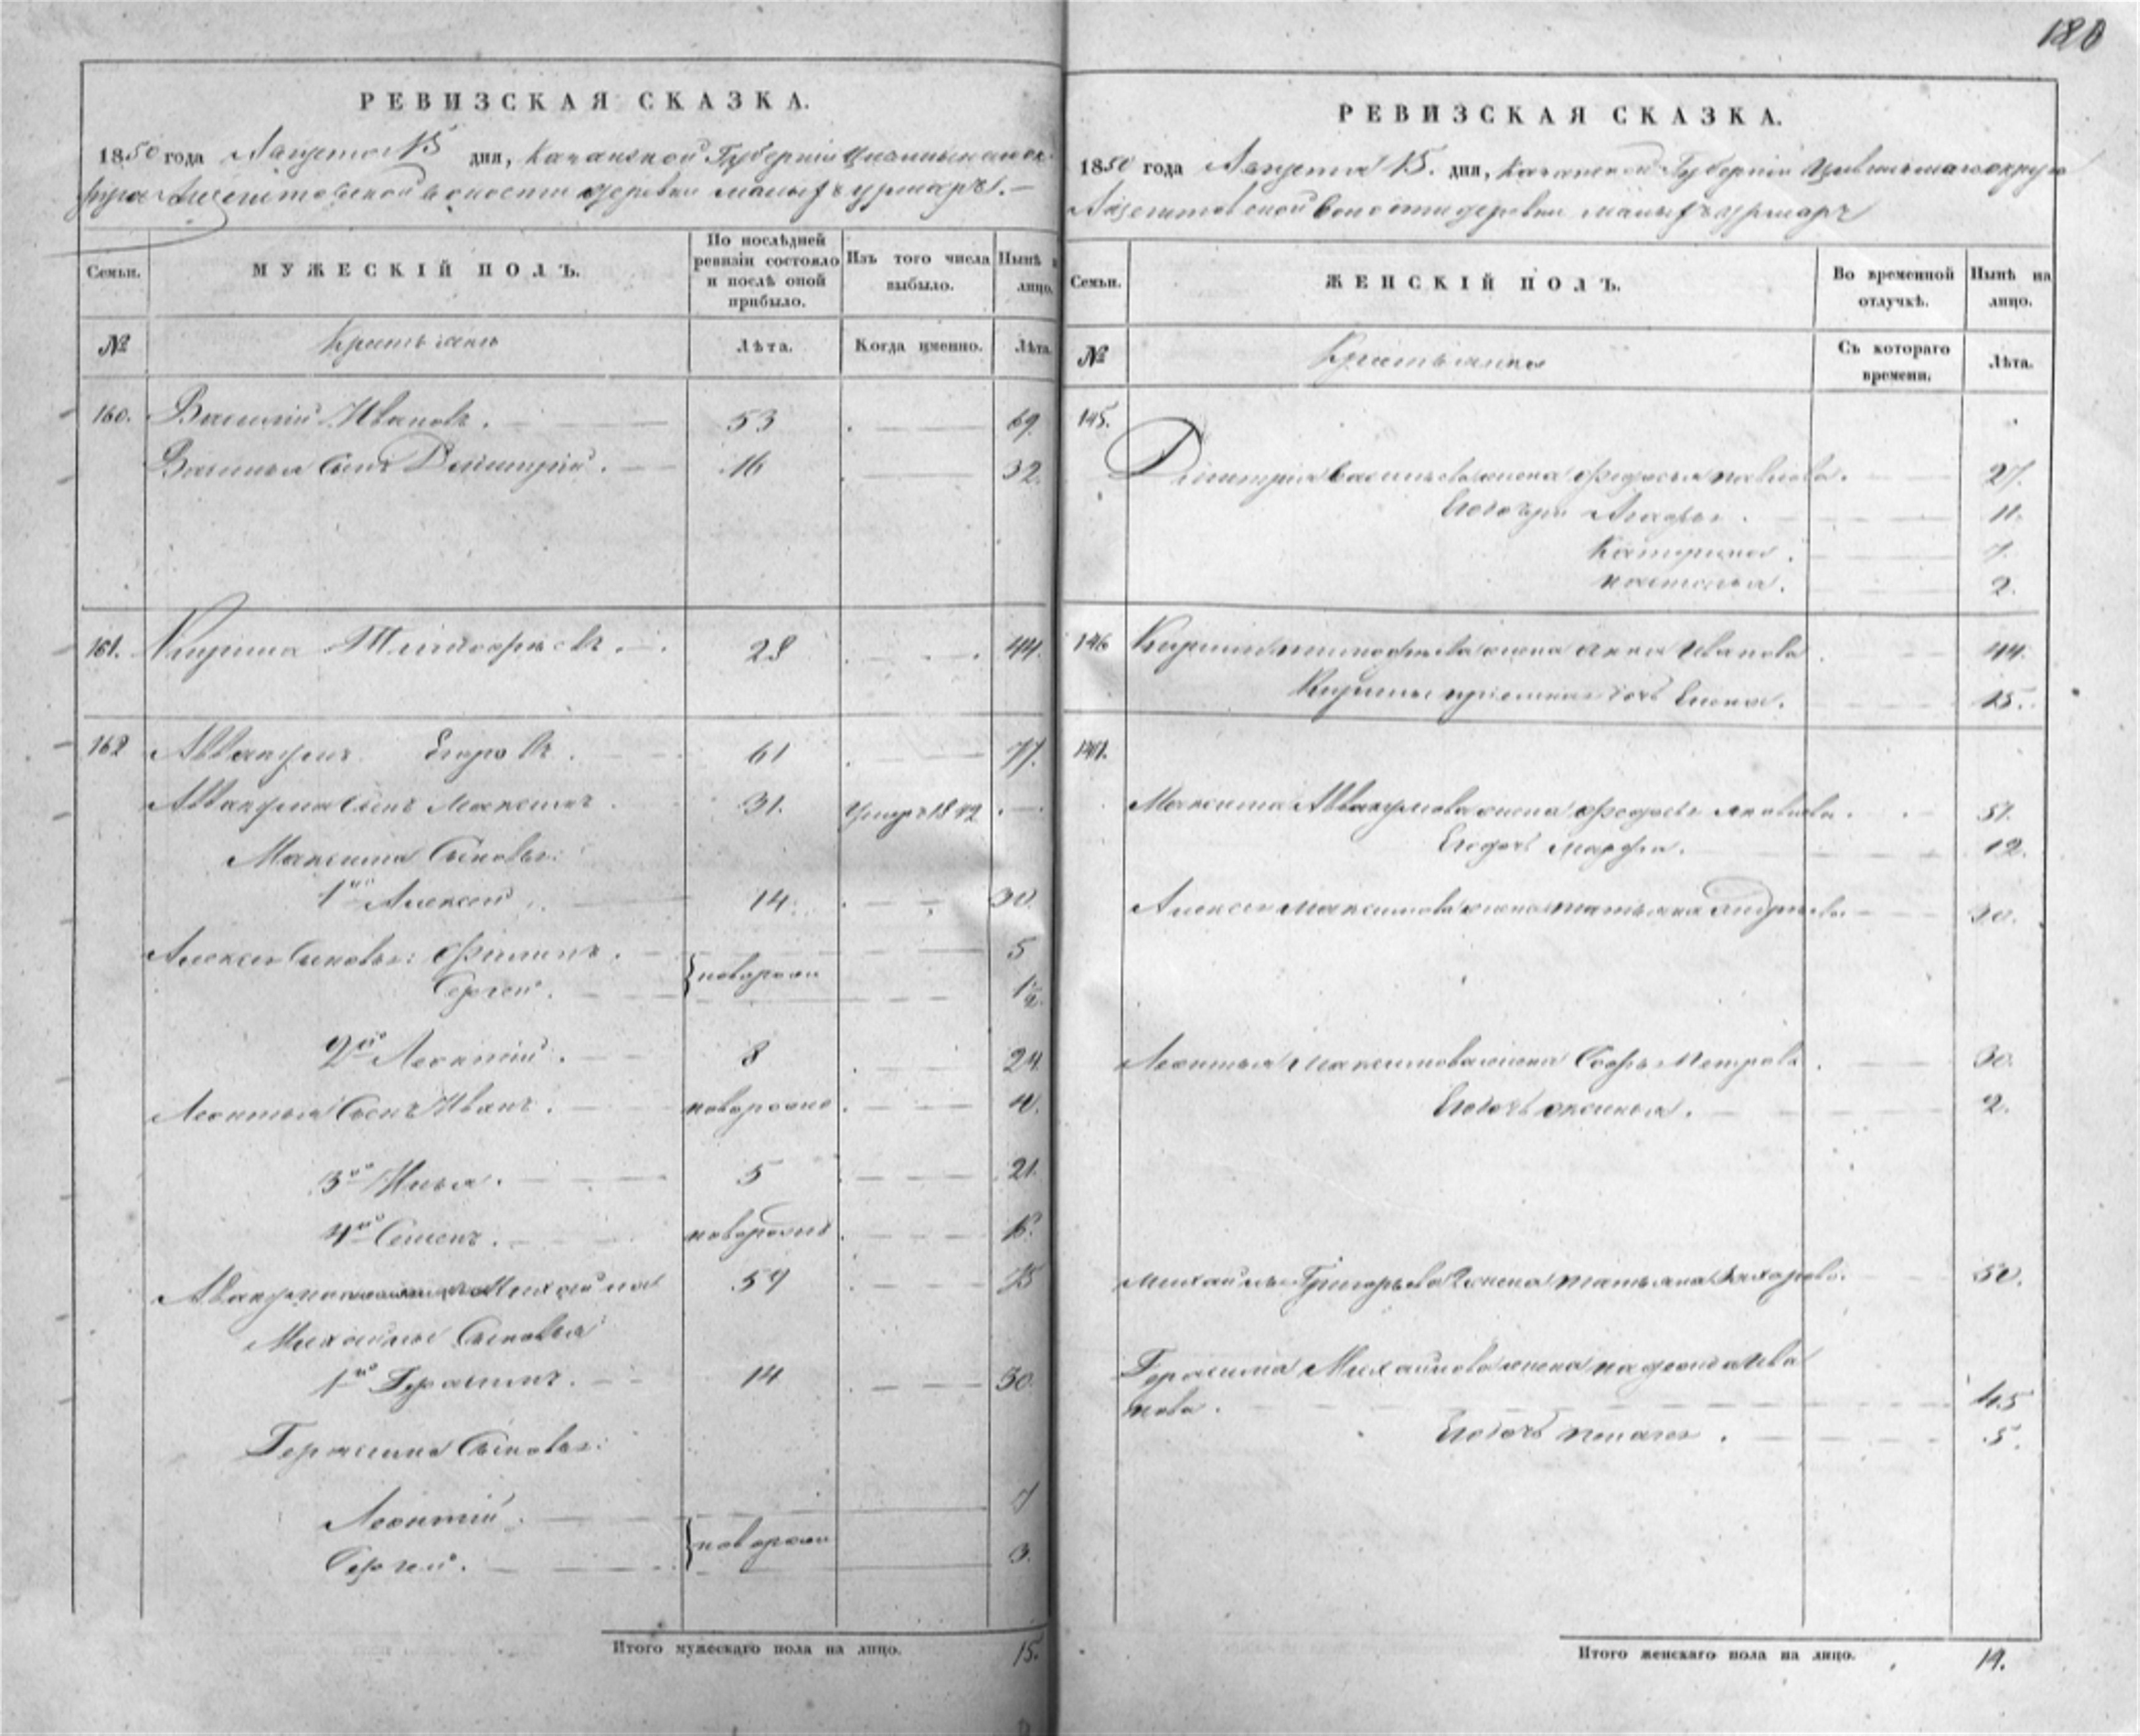 180
РЕВИЗСКАЯ СКАЗКА.
1850 года Августа 15 дня, Казанской Губернии Цивильскаго ок-
руга волости деревни малыхъ урмаръ.
Семьи. МУЖЕСКІЙ ПОЛЪ. По послѣдней ревизіи состояло и послѣ оной прибыло. Изъ того числа выбыло. Нынѣ на лицо.
№ Крестьяне Лѣта. Когда именно. Лѣта.
160. Василий Ивановъ. 53 69.
Василья сынъ Дмитрий. 16 32.
161. Кирила Тимофѣевъ. 28 44.
162 Аввакумъ Егоровъ. 61 77.
Аввакума сынъ Максимъ. 31. умеръ 1842
Максима сыновья:
1й Алексей 14. 30.
Алексея сыновья: Филипъ. новорожд 5
Сергей. 1½
2й Леонтий. 8 24.
Леонтья сынъ Иванъ. новорожд 4.
3й Илья. 5 21.
4й Семенъ. новорожд 15.
Аввакума Михайла 59 75
Михайлы сыновья
1й Герасимъ. 14 30.
Герасима сыновья:
Леонтий. новорожд 7
Сергей. 3.
Итого мужескаго пола на лицо. 15.
РЕВИЗСКАЯ СКАЗКА.
1850 года Августа 15. дня, Казанской Губернии Цивильскаго округа
волости деревни малыхъ урмаръ
Семьи. ЖЕНСКІЙ ПОЛЪ. Во временной отлучкѣ. Нынѣ на лицо.
№ Крестьянки Съ котораго времени. Лѣта.
145.
Дмитрия Васильева жена Федосья Павлова. 27.
Его дочери Агафья. 11.
Катерина. 7.
Настасья. 2.
146 Кирилы Тимофѣева жена Анна Иванова 44.
Кирилы приемная дочь Елена. 15.
147.
Максима Аввакумова жена Федосья Яковлева. 51.
Его дочь Марфа. 12.
Алексея Максимова жена Татьяна Андреева 30.
Леонтья Максимова жена Софья Петрова 30.
Его дочь Аксинья. 2.
Михайлы Григорьева жена Татьяна Захарова. 50.
Герасима Михайлова жена Надежда Ива
нова. 45
Его дочь Пелагея. 5.
Итого женскаго пола на лицо. 14.